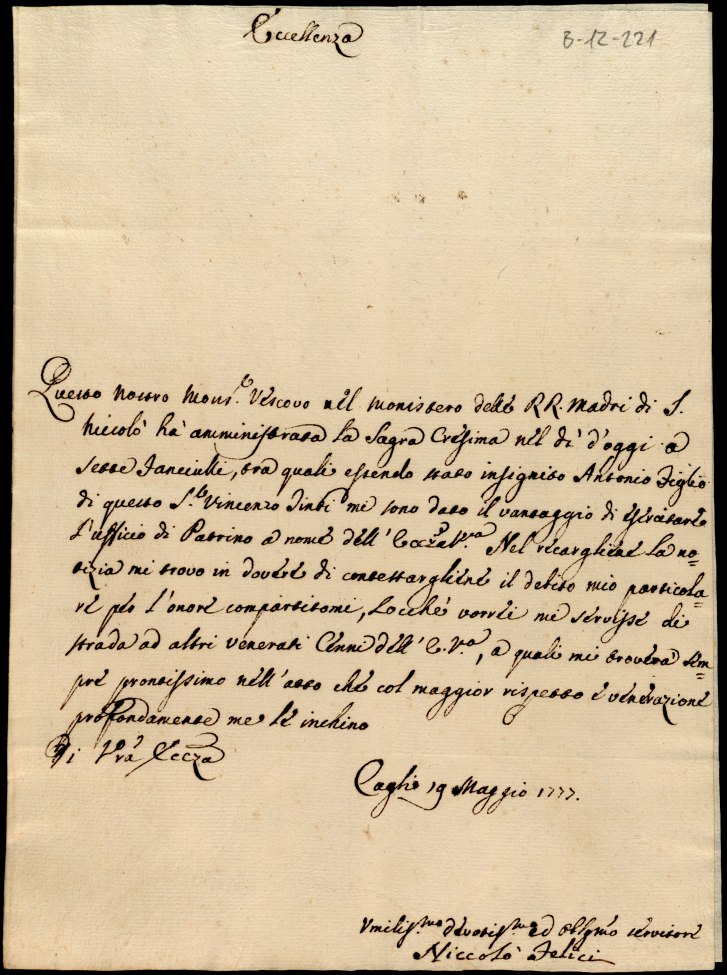 Eccellenza
B-12-221
Questo nostro Mons.r Vescovo nel monistero delle RR. Madri di S.
Niccolò hà amministrata la Sagra Cresima nel dì d'oggi a
sette Fanciulli, tra quali essendo stato insignito Antonio Figlio
di questo S.re Vincenzo Tinti mi sono dato il vantaggio di esercitare
l'ufficio di Patrino a nome dell'Eccza V.ra Nel recargliene la no=
tizia mi trovo in dovere di contestargliene il debito mio particola=
re per l'onore compartitomi, Locchè vorrei mi servisse di
strada ad altri venerati Cenni dell'E. V.a, a quali mi troverà sem=
pre prontissimo nell'atto che col maggior rispetto e venerazione
profondamente me le inchino
Di V.ra Eccza
Cagli 19 Maggio 1777.
Umiliss.mo devotiss.mo ed obblgmo servitore
Niccolò Felici